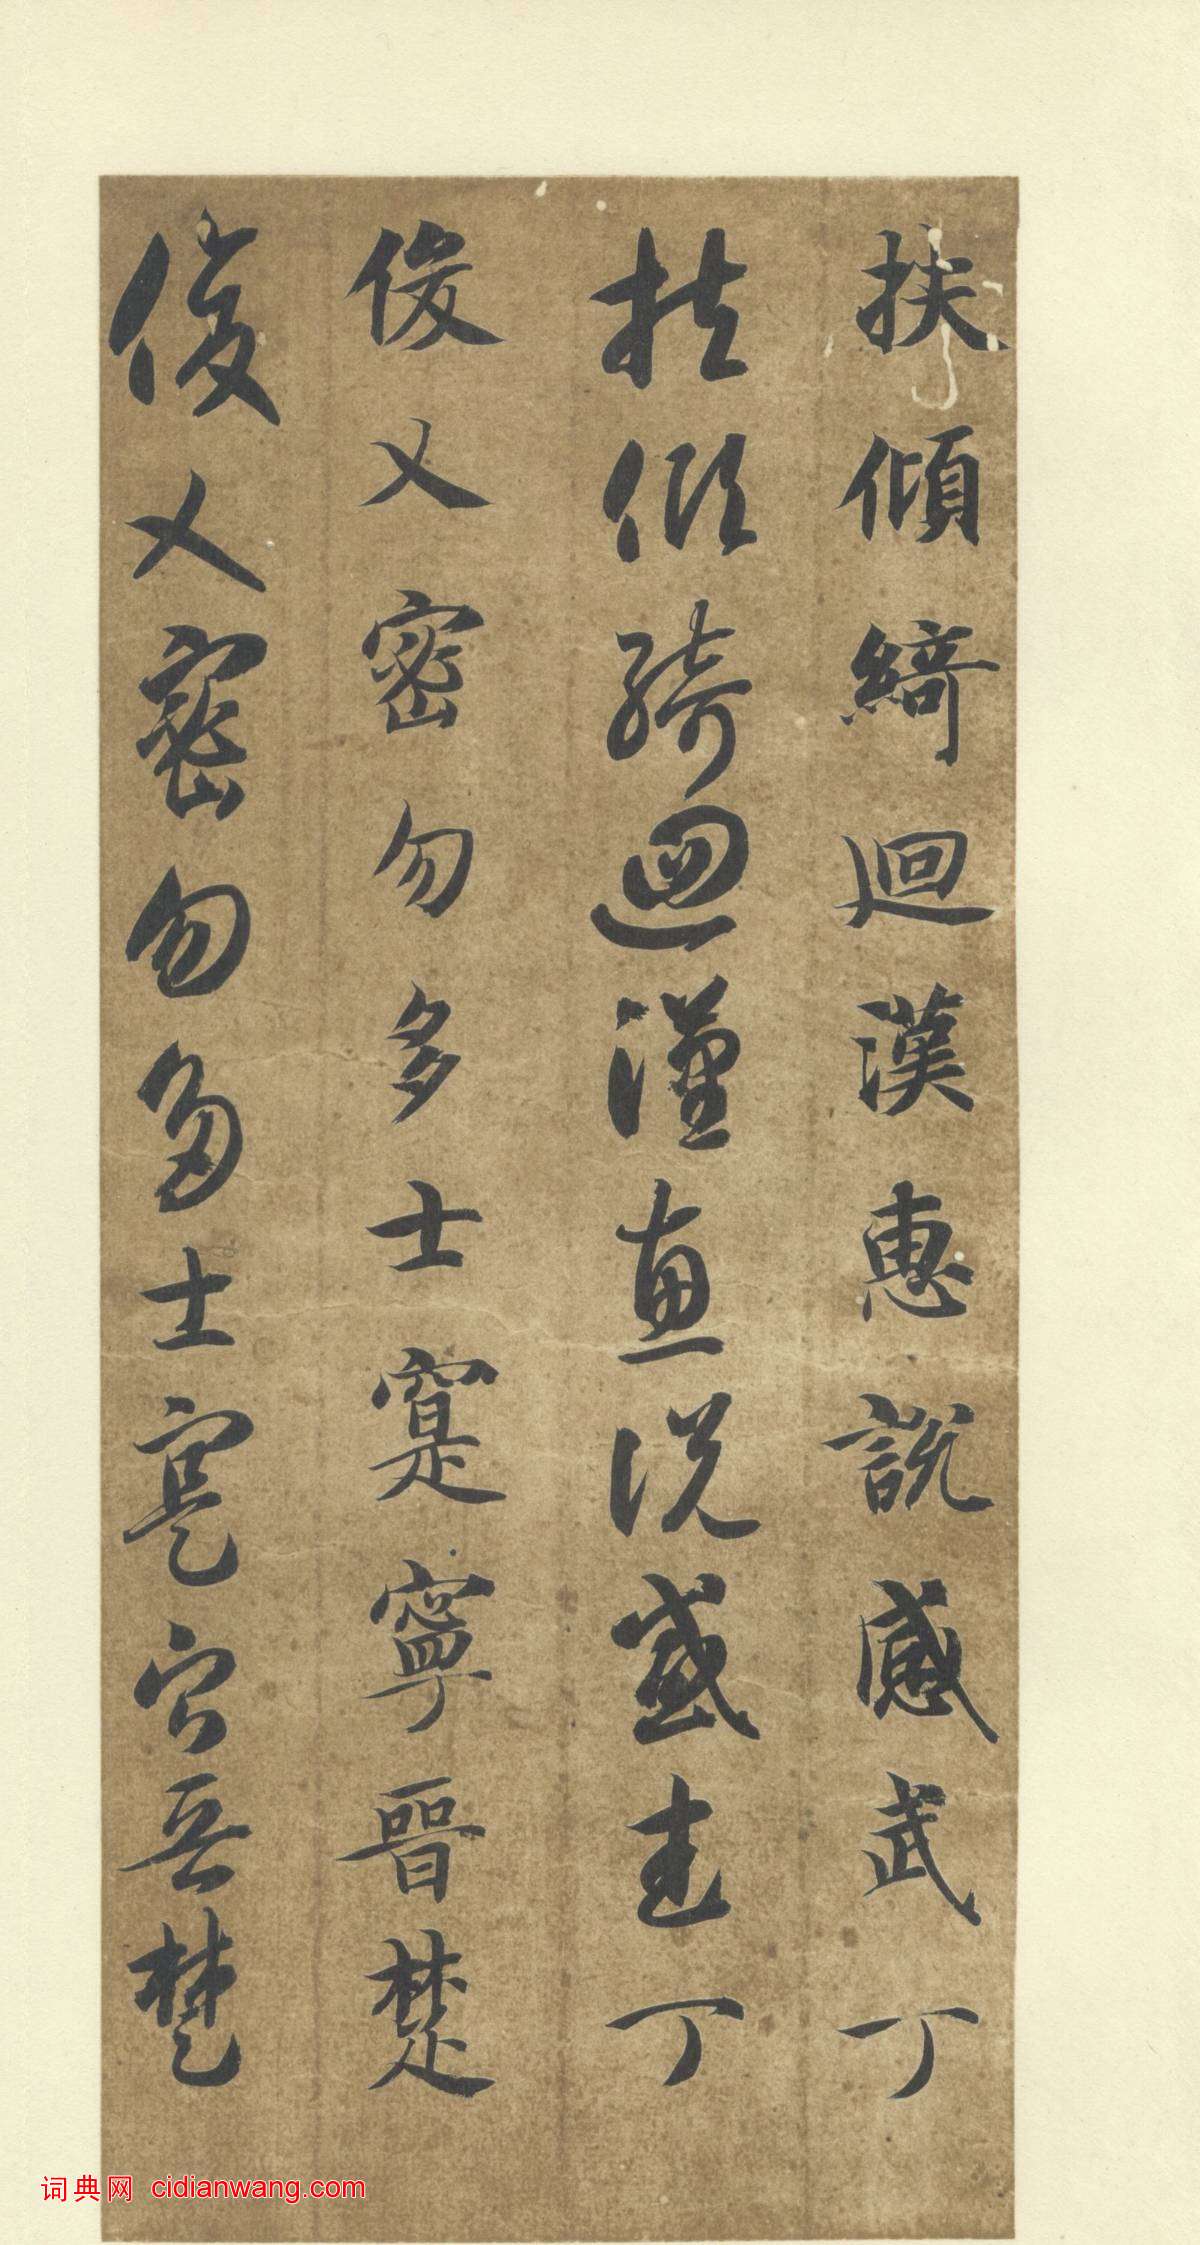 扶傾綺迴漢惠説感武丁
扶傾綺迴漢惠説感武丁
俊乂密勿多士寔寧晉楚
俊乂密勿多士寔寧晉楚
词典网 cidianwang.com